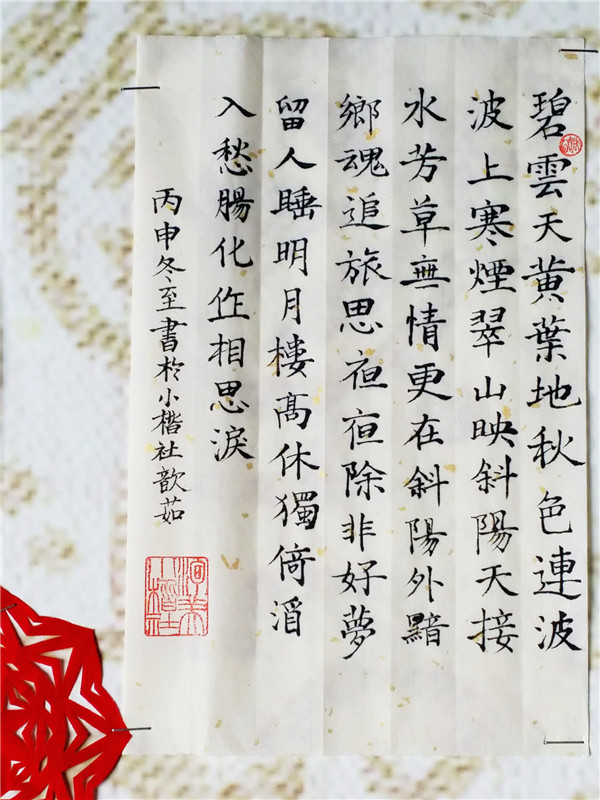 碧雲天黄葉地秋色連波
波上寒煙翠山映斜陽天接
水芳草無情更在斜陽外黯
鄉魂追旅思夜夜除非好夢
留人睡明月樓髙休獨倚酒
入愁腸化作相思淚
丙申冬至書於小楷社歆茹